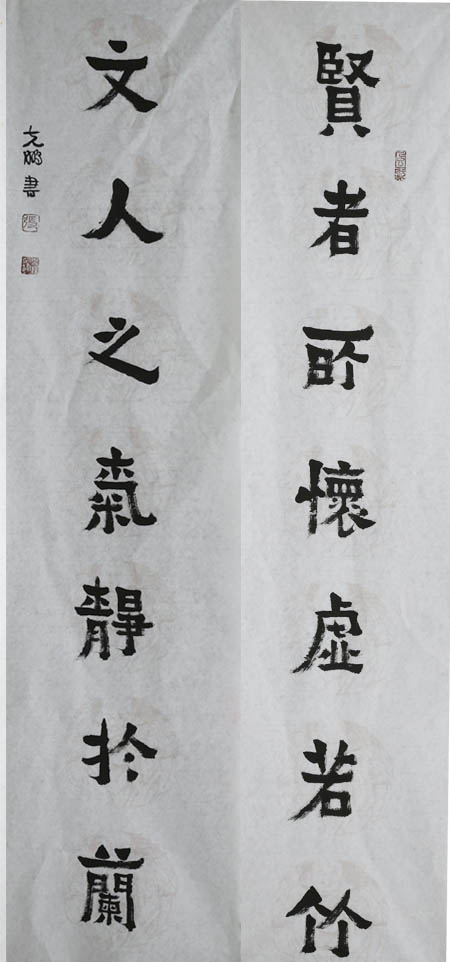 賢者所懷虛若竹
文人之氣靜於蘭
克鵬書